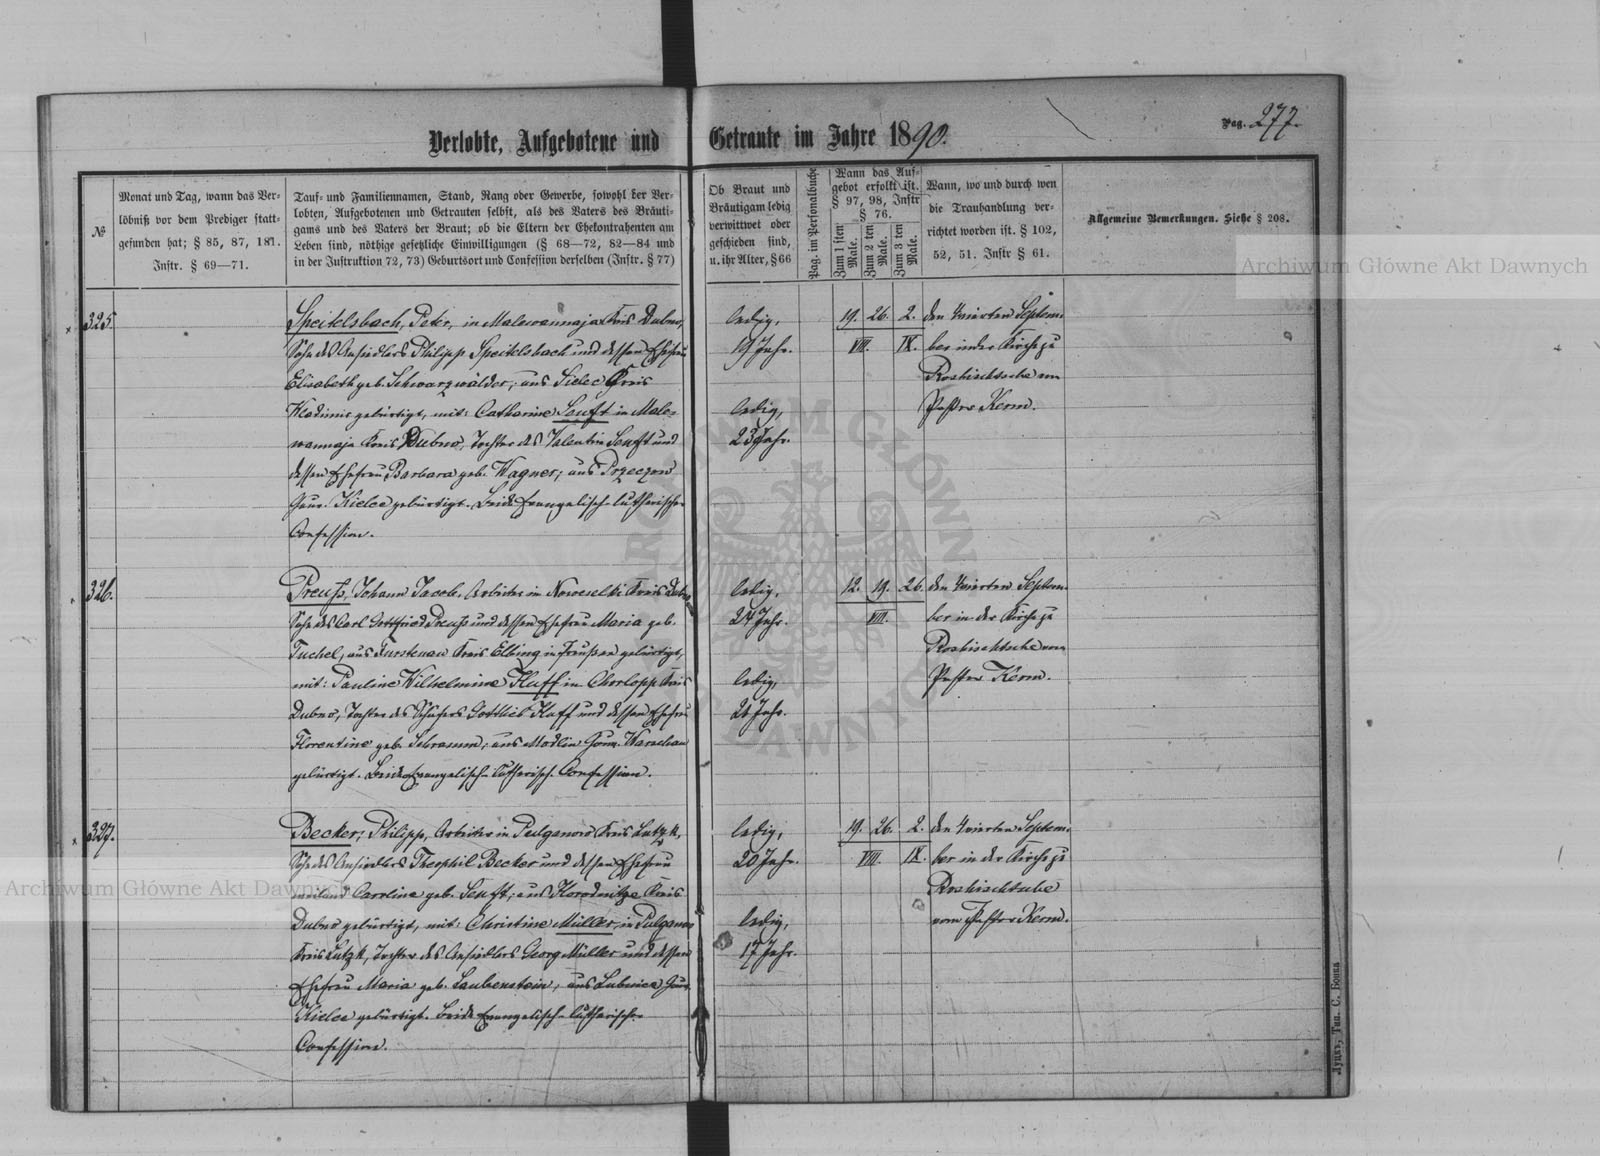 Verlobte, Aufgebotene und Getraute im Jahre 1890.
Pag. 277.
№
Monat und Tag, wann das Ver-
löbniß vor dem Prediger statt-
gefunden hat; § 85, 87, 181.
Instr. § 69—71.
Tauf- und Familiennamen, Stand, Rang oder Gewerbe, sowohl der Ver-
lobten, Aufgebotenen und Getrauten selbst, als des Vaters des Bräuti-
gams und des Vaters der Braut; ob die Eltern der Ehekontrahenten am
Leben sind, nöthige gesetzliche Einwilligungen (§ 68—72, 82—84 und
in der Instruktion 72, 73) Geburtsort und Confession derselben (Instr. § 77)
Ob Braut und
Bräutigam ledig
verwittwet oder
geschieden sind,
u. ihr Alter, § 66
Pag. im Personalbuche
Wann das Auf-
gebot erfolkt ist.
§ 97, 98, Instr
§ 76.
Zum 1 sten Male.
Zum 2 ten Male.
Zum 3 ten Male.
Wann, wo und durch wen
die Trauhandlung ver-
richtet worden ist. § 102,
52, 51. Instr § 61.
Allgemeine Bemerkungen. Siehe § 208.
325.
Speitelsbach, Peter, in Malewannaja Kreis Dubno,
Sohn des Ansiedlers Philipp Speitelsbach und dessen Ehefrau
Elisabeth geb. Schwarzwälder, aus Sielec Kreis
Wladimir gebürtigt, mit: Catharine Senft in Male-
wannaja Kreis Dubno, Tochter des Valentin Senft und
dessen Ehefrau Barbara geb. Wagner, aus Przeczow
Gouv. Kielce gebürtigt. Beide Evangelisch-lutherischer
Confession.
ledig,
19 Jahr.
ledig,
23 Jahr.
19. 26. 2.
VIII. IX.
den Vierten Septem-
ber in der Kirche zu
Roshischtsche von
Pastor Kerm.
326.
Preuß, Johann Jacob, Arbeiter in Nowoselki Kreis Dubno
Sohn des Carl Gottfried Preuß und dessen Ehefrau Maria geb.
Tuchel, aus Furstenau Kreis Elbing in Preußen gebürtigt,
mit: Pauline Wilhelmine Kluff in Chorlopp Kreis
Dubno, Tochter des Gottlieb Kluff und dessen Ehefrau
Florentine geb. Schramm, aus Modlin Gouv. Warschau
gebürtigt. Beide Evangelisch-lutherisch. Confession.
ledig,
24 Jahr.
ledig,
21 Jahr.
12. 19. 26.
VIII.
den Vierten Septem-
ber in der Kirche zu
Roshischtsche von
Pastor Kerm.
327.
Becker, Philipp, Arbeiter in Pulganow Kreis Lutzk,
Sohn des Ansiedlers Theophil Becker und dessen Ehefrau
weiland Caroline geb. Senft, aus Korodnitze Kreis
Dubno gebürtigt, mit: Christine Müller, in Pulganow
Kreis Lutzk, Tochter des Ansiedlers Georg Müller und dessen
Ehefrau Maria geb. Laubenstein, aus Lubnica Gouv.
Kielce gebürtigt. Beide Evangelisch-lutherischer
Confession.
ledig,
20 Jahr.
ledig,
17 Jahr.
19. 26. 2.
VIII. IX.
den Vierten Septem-
ber in der Kirche zu
Roshischtsche
vom Pastor Kerm.
Луцкъ, Тип. С. Бонка
Archiwum Główne Akt Dawnych
Archiwum Główne Akt Dawnych